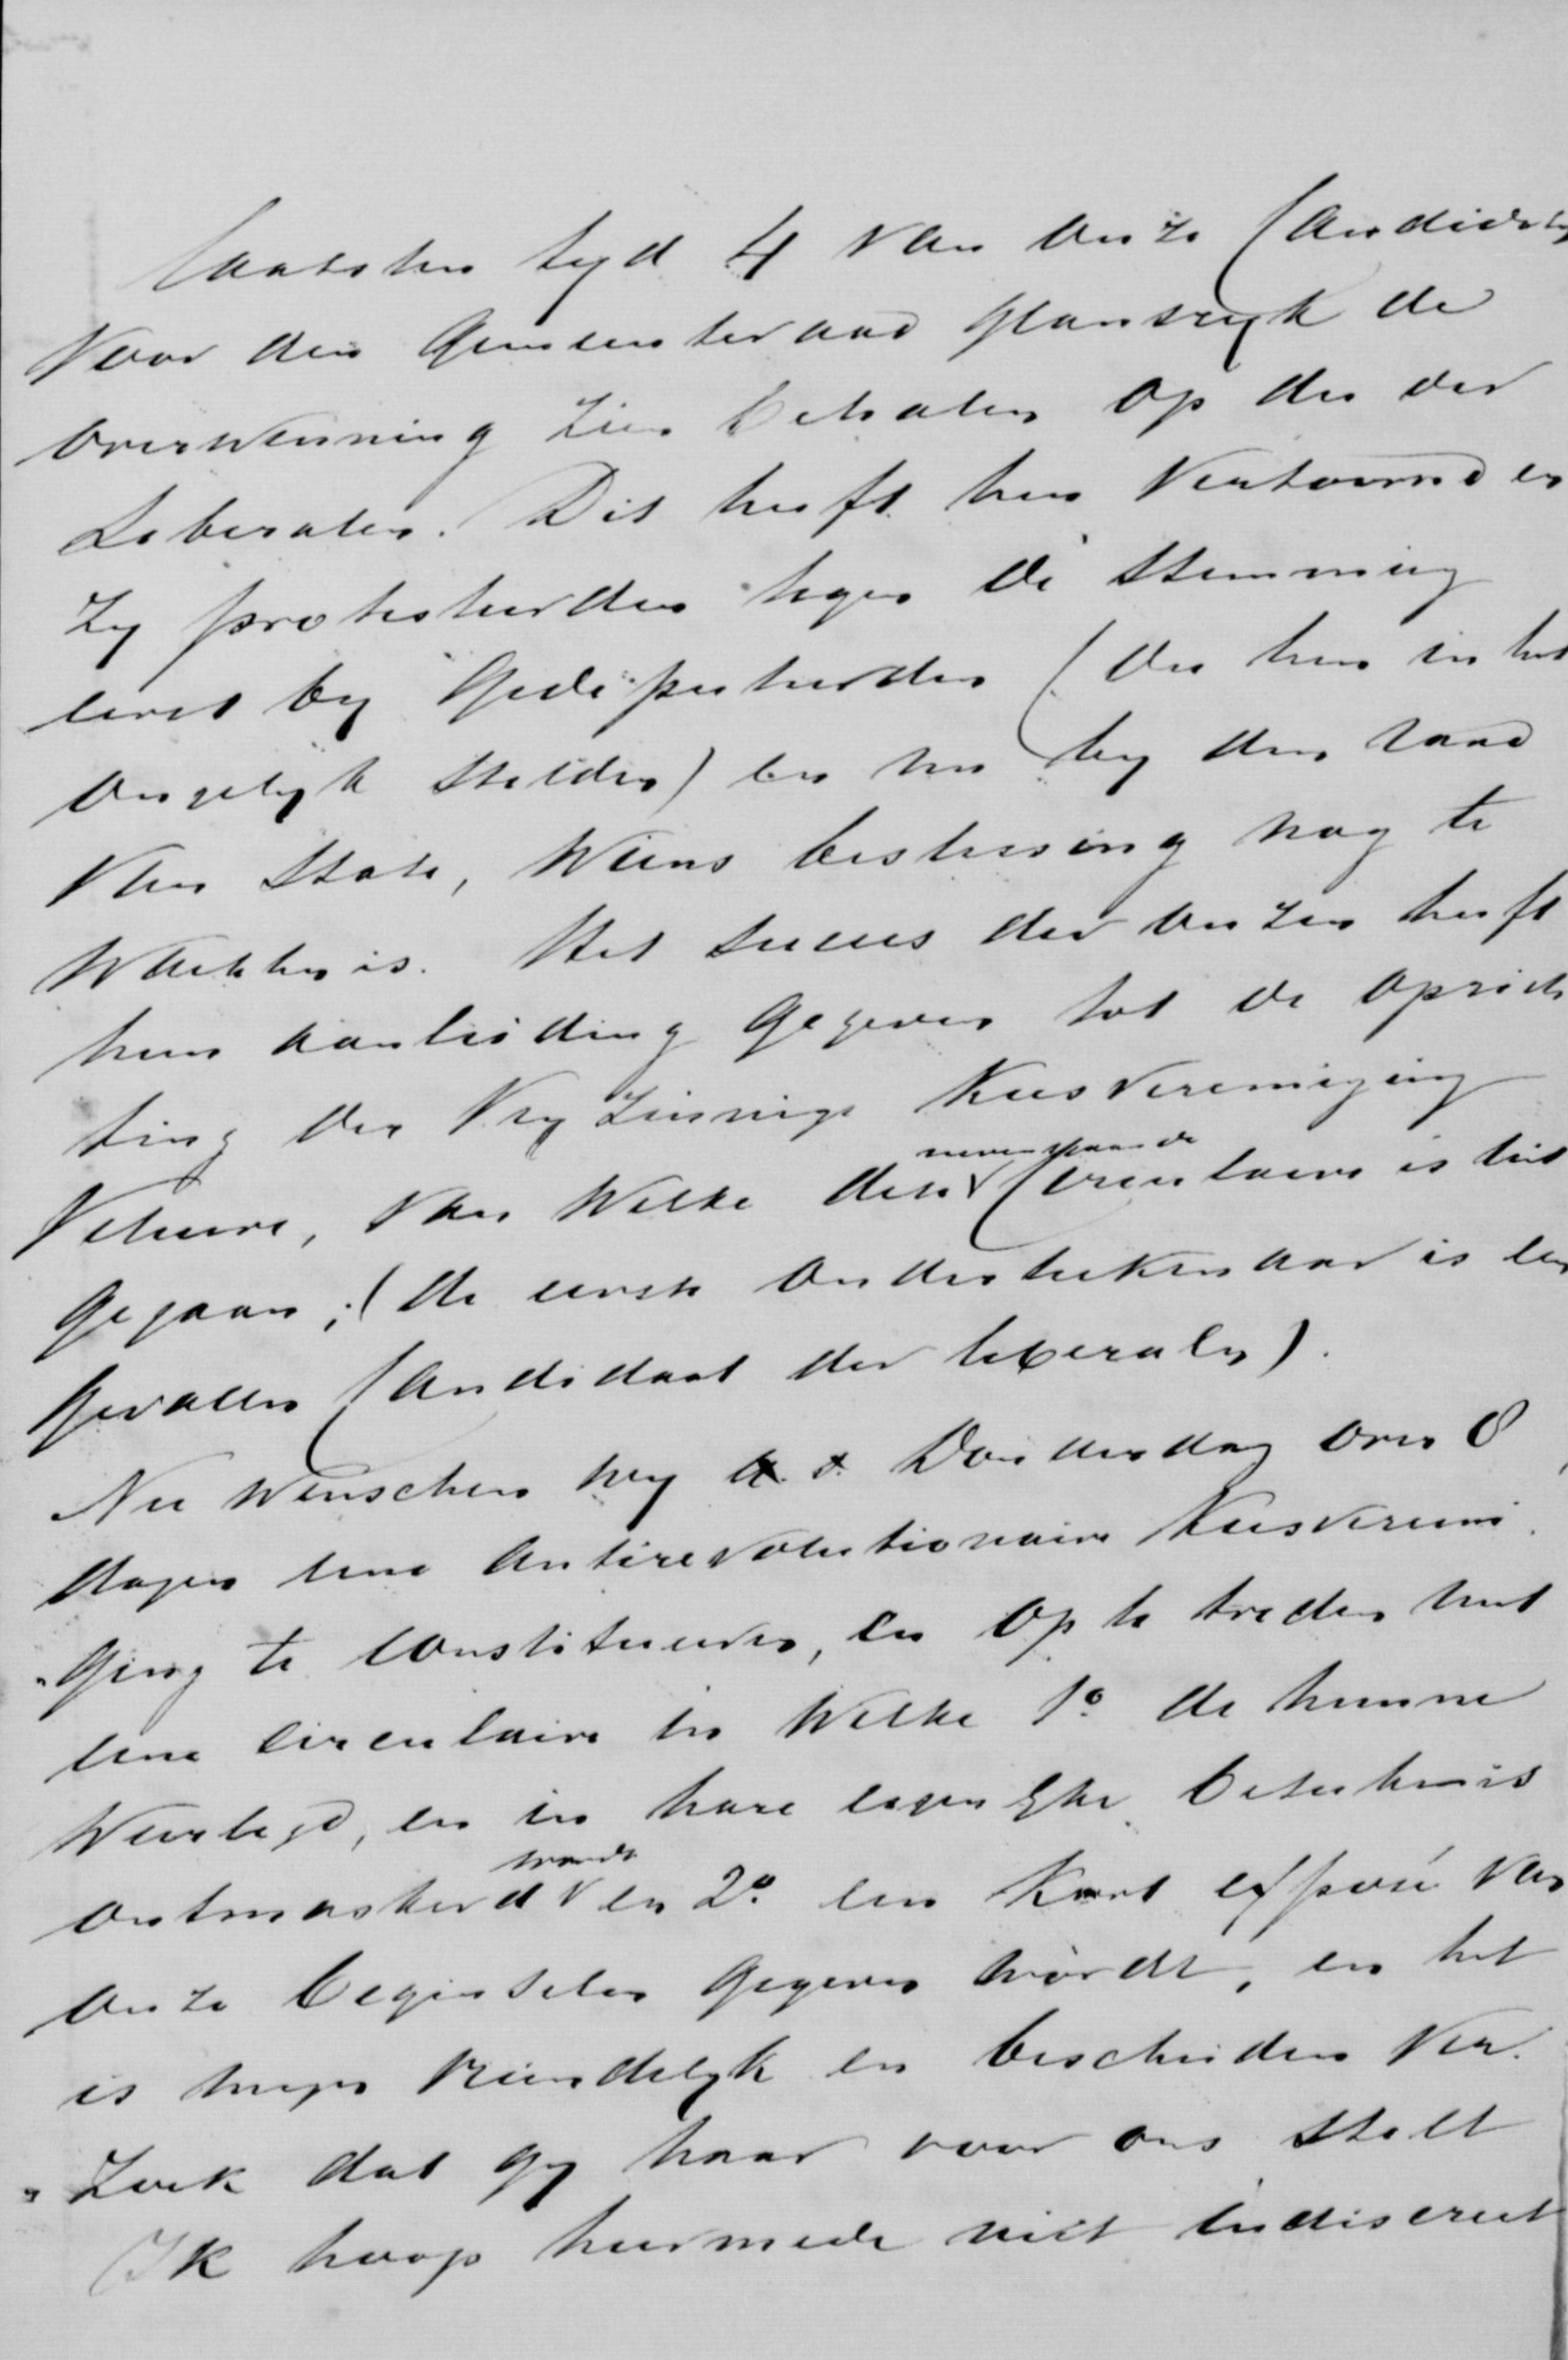 laatsten tyd 4 van onze Candidaten
voor den Gemeenteraad glansryk de
overwinning zien behalen op die der
Liberalen. Dit heeft hen vertoornd en
zy protesteerden tegen de stemming
eerst by Gedeputeerden (die hen in het
ongelyk stelden) en nu by den raad
van State, wiens beslissing nog te
wachten is. Het succes der onzen heeft
hen aanleiding gegeven tot de oprich
ting der Vryzinnige Kiesvereeniging
Veluwe, van welke deze nevenstaande Circulaire is uit
gegaan; (de eerste onderteekenaar is een
gevallen Candidaat der liberalen).
Nu wenschen wy Donderdag over 8
dagen eene Antirevolutionaire Kiesvereeni
ging te constitueeren, en op te treden met
eene circulaire in welke 1o. de hunne
weerlegd, en in hare eigenlyke beteekenis
ontmaskerd wordt en 2o. een kort exposé van
onze beginselen gegeven wordt, en het
is myn vriendelyk en bescheiden ver
zoek dat gy haar voor ons stelt
Ik hoop hiermede niet indiscreet